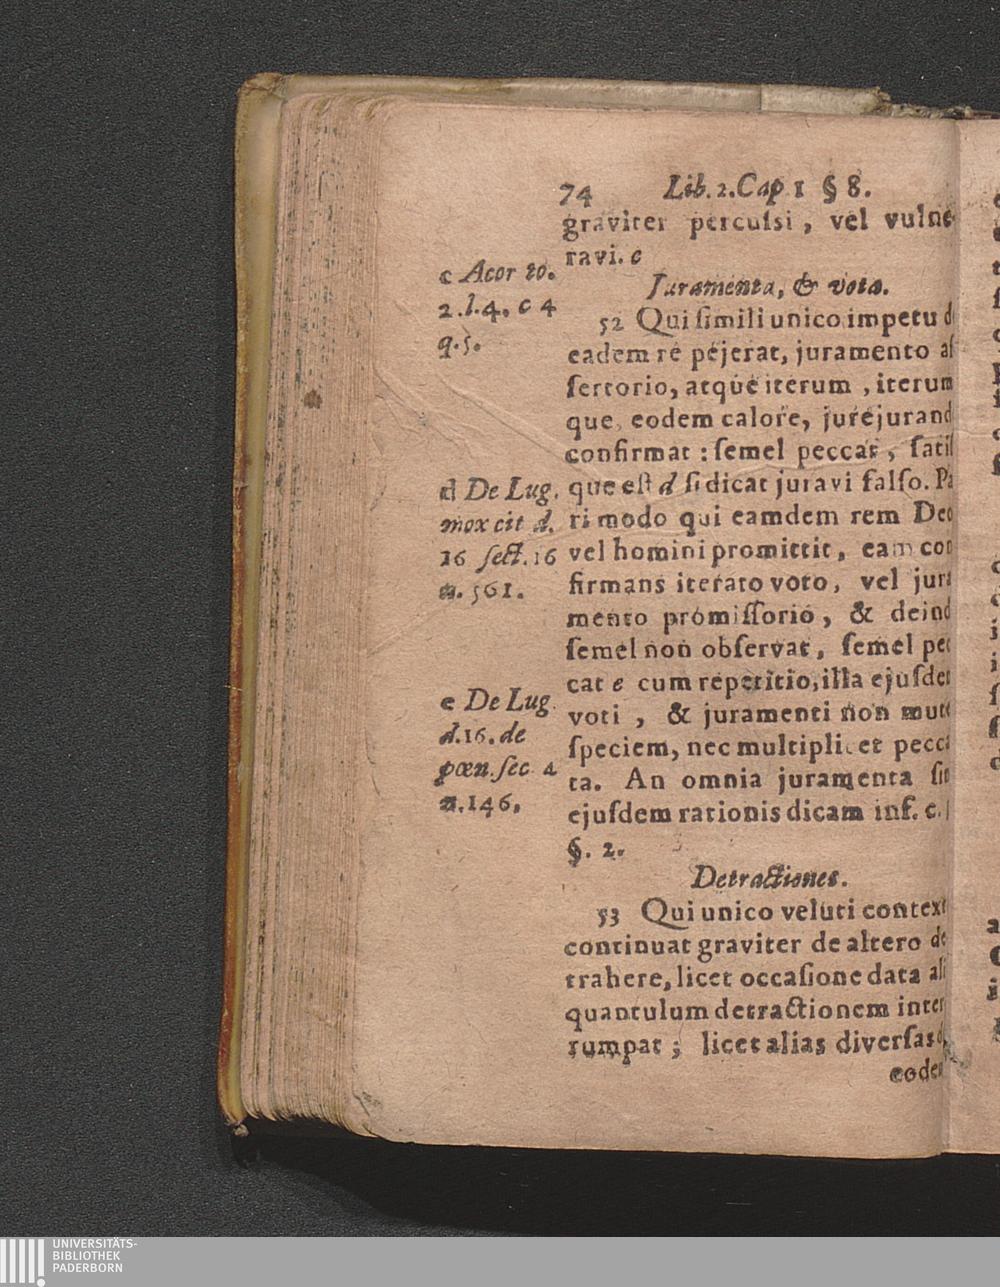 74 Lib. 2. Cap 1 § 8.
graviter percussi, vel vulne-
ravi. c
c Acor to.
2. l. 4. c 4
q. 5.
Juramenta, & vota.
52 Qui simili unico impetu d
eadem re pejerat, juramento as
sertorio, atque iterum, iterum
que, eodem calore, jurejurand
confirmat: semel peccat, satis
que est d si dicat juravi falso. Pa
ri modo qui eamdem rem Deo
vel homini promittit, eam con
firmans iterato voto, vel jura
mento promissorio, & deind
semel non observat, semel pec
cat e cum repetitio, illa ejusdem
voti, & juramenti non mute
speciem, nec multiplicet pecca
ta. An omnia juramenta sin
ejusdem rationis dicam inf. c.
§. 2.
d De Lug.
mox cit d.
16 sect. 16
n. 561.
e De Lug
d. 16. de
pœn. sec 4
n. 146.
Detractiones.
53 Qui unico veluti context
continuat graviter de altero de
trahere, licet occasione data ali
quantulum detractionem inter
rumpat; licet alias diversas d
eodem
UNIVERSITÄTS-
BIBLIOTHEK
PADERBORN